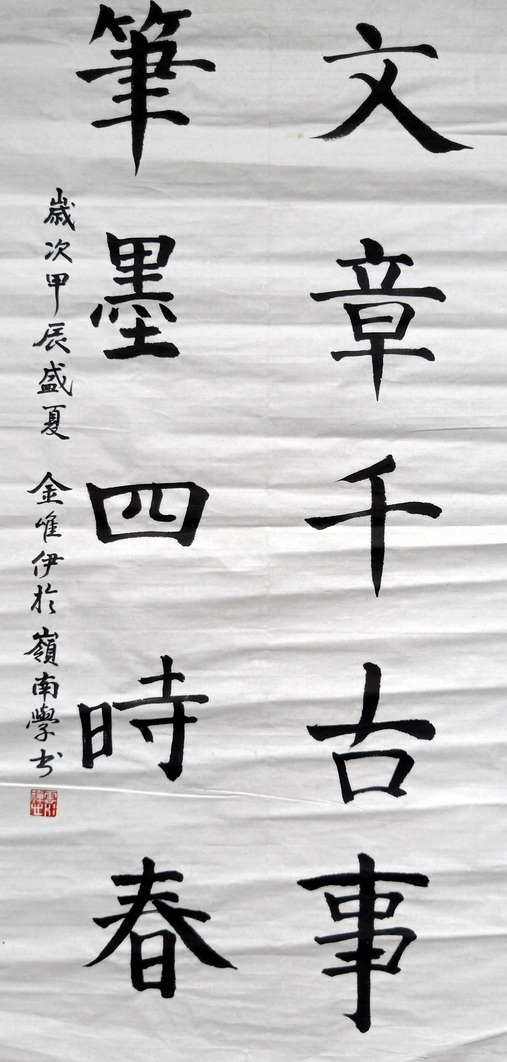 文章千古事
筆墨四時春
歲次甲辰盛夏 金唯伊於嶺南學书